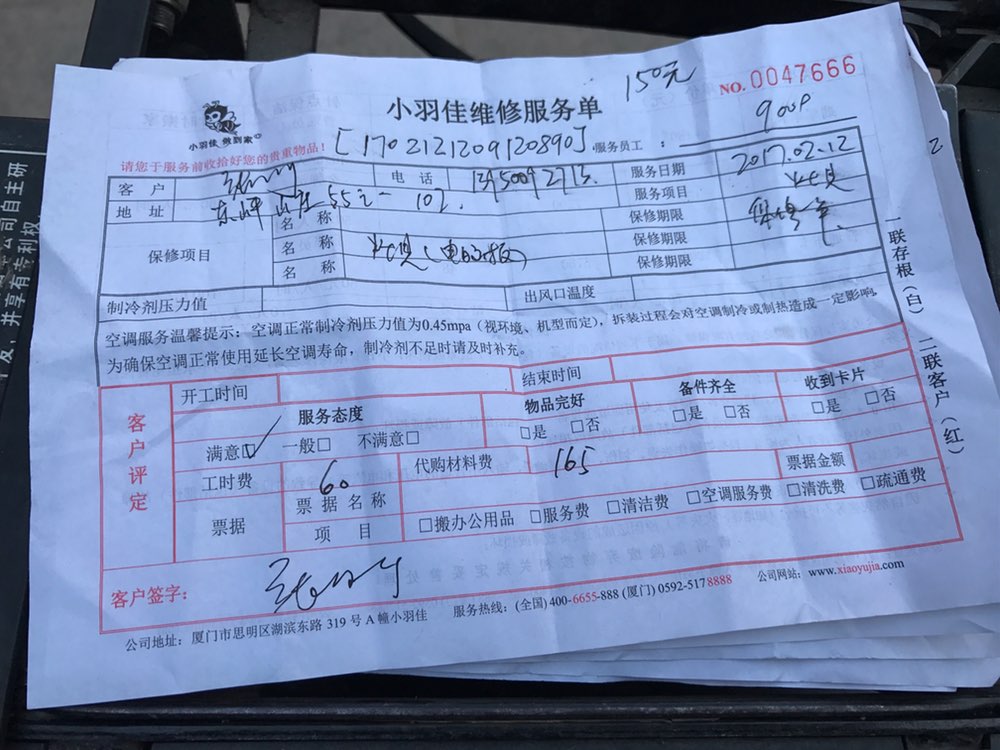 150元 NO.0047666
小羽佳 做到家
小羽佳维修服务单
900P
请您于服务前收拾好您的贵重物品！
[170212120912089​0] 服务员工：
客户 电话 服务日期 2017.02.12
地址 东坪山庄 55元一 102. 服务项目
保修项目 名称 保修期限
名称 (电脑板) 保修期限
名称 保修期限
制冷剂压力值 出风口温度
空调服务温馨提示：空调正常制冷剂压力值为0.45mpa（视环境、机型而定），拆装过程会对空调制冷或制热造成一定影响，
为确保空调正常使用延长空调寿命，制冷剂不足时请及时补充。
一联存根（白） 二联客户（红）
客户评定
开工时间 结束时间
服务态度 物品完好 备件齐全 收到卡片
满意☑ 一般□ 不满意□ □是 □否 □是 □否 □是 □否
工时费 60 代购材料费 165 票据金额
票据 票据名称
项目 □搬办公用品 □服务费 □清洁费 □空调服务费 □清洗费 □疏通费
客户签字：
公司地址：厦门市思明区湖滨东路 319 号 A 幢小羽佳 服务热线：(全国) 400-6655-888 (厦门) 0592-5178888 公司网站：www.xiaoyujia.com
公司自主研
发，并享有专利权